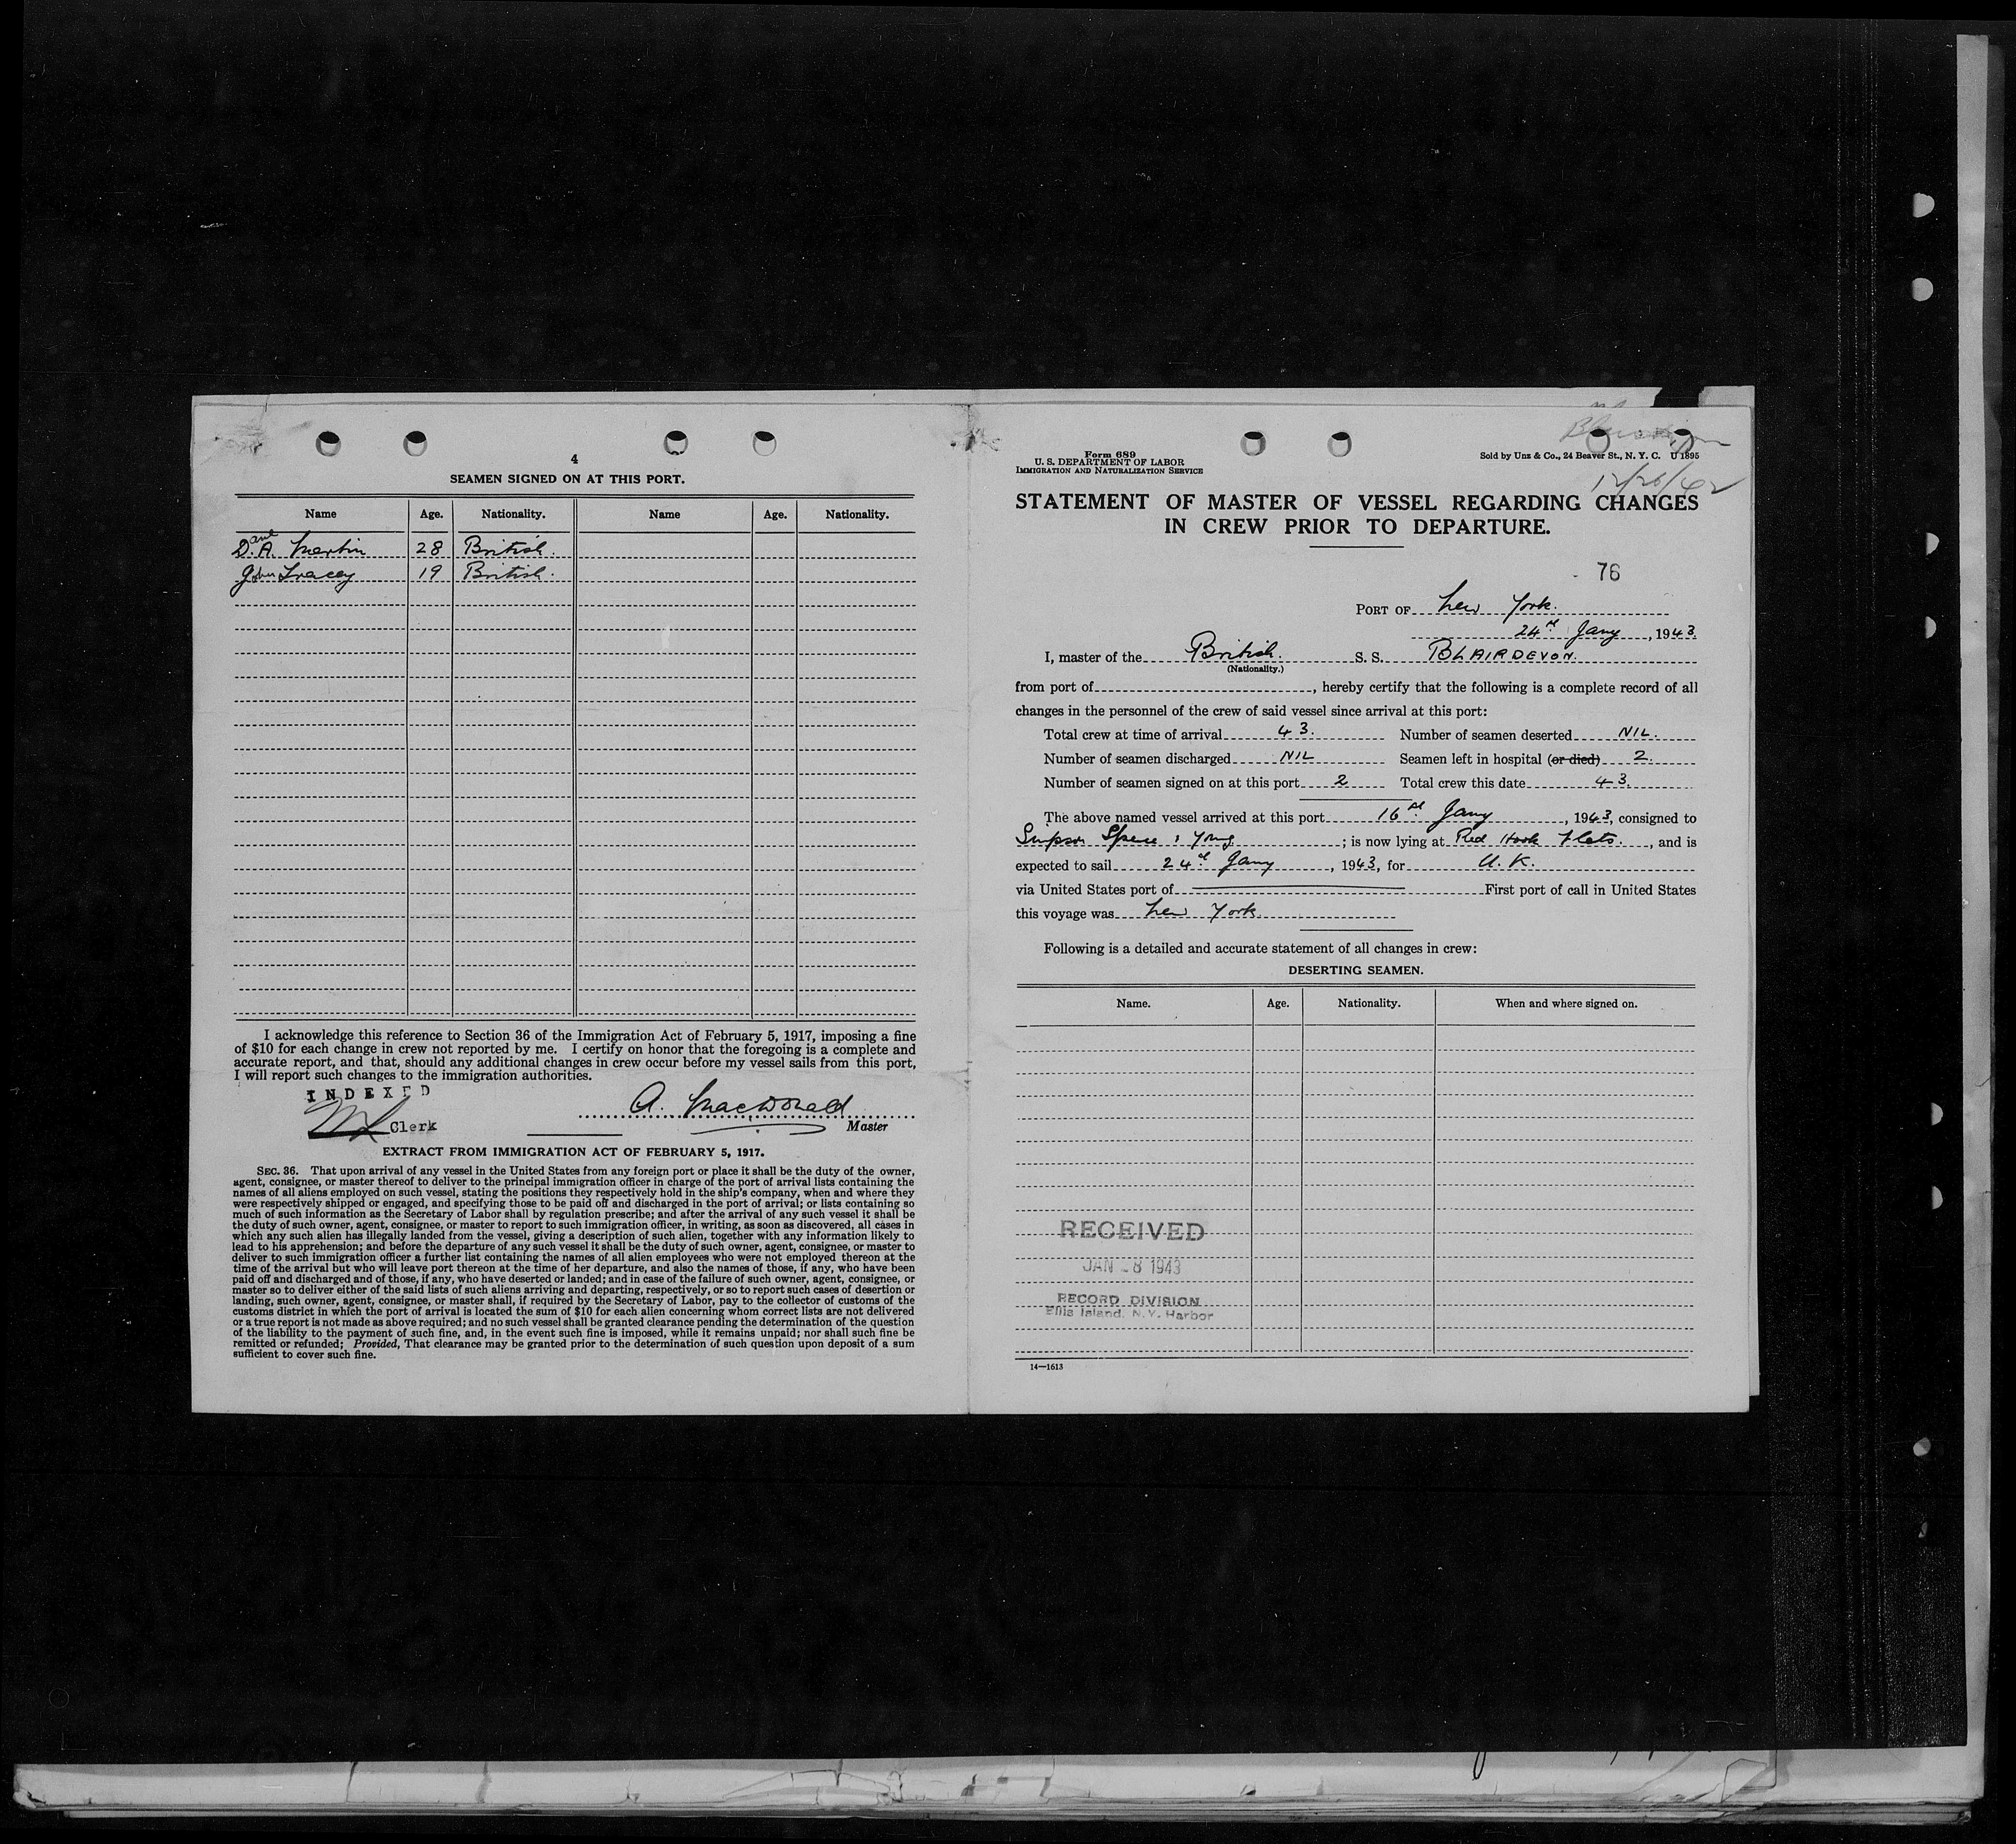 4
SEAMEN SIGNED ON AT THIS PORT.
Name Age. Nationality. Name Age. Nationality.
D. A. Martin 28 British.
John Tracey 19 British.
I acknowledge this reference to Section 36 of the Immigration Act of February 5, 1917, imposing a fine
of $10 for each change in crew not reported by me. I certify on honor that the foregoing is a complete and
accurate report, and that, should any additional changes in crew occur before my vessel sails from this port,
I will report such changes to the immigration authorities.
INDEXED
Clerk
A. MacDonald
Master
EXTRACT FROM IMMIGRATION ACT OF FEBRUARY 5, 1917.
SEC. 36. That upon arrival of any vessel in the United States from any foreign port or place it shall be the duty of the owner,
agent, consignee, or master thereof to deliver to the principal immigration officer in charge of the port of arrival lists containing the
names of all aliens employed on such vessel, stating the positions they respectively hold in the ship's company, when and where they
were respectively shipped or engaged, and specifying those to be paid off and discharged in the port of arrival; or lists containing so
much of such information as the Secretary of Labor shall by regulation prescribe; and after the arrival of any such vessel it shall be
the duty of such owner, agent, consignee, or master to report to such immigration officer, in writing, as soon as discovered, all cases in
which any such alien has illegally landed from the vessel, giving a description of such alien, together with any information likely to
lead to his apprehension; and before the departure of any such vessel it shall be the duty of such owner, agent, consignee, or master to
deliver to such immigration officer a further list containing the names of all alien employees who were not employed thereon at the
time of the arrival but who will leave port thereon at the time of her departure, and also the names of those, if any, who have been
paid off and discharged and of those, if any, who have deserted or landed; and in case of the failure of such owner, agent, consignee, or
master so to deliver either of the said lists of such aliens arriving and departing, respectively, or so to report such cases of desertion or
landing, such owner, agent, consignee, or master shall, if required by the Secretary of Labor, pay to the collector of customs of the
customs district in which the port of arrival is located the sum of $10 for each alien concerning whom correct lists are not delivered
or a true report is not made as above required; and no such vessel shall be granted clearance pending the determination of the question
of the liability to the payment of such fine, and, in the event such fine is imposed, while it remains unpaid; nor shall such fine be
remitted or refunded; Provided, That clearance may be granted prior to the determination of such question upon deposit of a sum
sufficient to cover such fine.
Form 689
U. S. DEPARTMENT OF LABOR
IMMIGRATION AND NATURALIZATION SERVICE
Sold by Unz & Co., 24 Beaver St., N. Y. C. U 1895
12/26/42
STATEMENT OF MASTER OF VESSEL REGARDING CHANGES
IN CREW PRIOR TO DEPARTURE.
76
PORT OF New York.
24th Jany, 1943.
I, master of the British. S. S. BLAIRDEVON.
(Nationality.)
from port of , hereby certify that the following is a complete record of all
changes in the personnel of the crew of said vessel since arrival at this port:
Total crew at time of arrival 43. Number of seamen deserted NIL.
Number of seamen discharged NIL Seamen left in hospital (or died) 2.
Number of seamen signed on at this port 2 Total crew this date 43.
The above named vessel arrived at this port 16th Jany, 1943, consigned to
Simpson Spence & Young ; is now lying at Red Hook Flats. , and is
expected to sail 24th Jany, 1943, for U. K.
via United States port of First port of call in United States
this voyage was New York.
Following is a detailed and accurate statement of all changes in crew:
DESERTING SEAMEN.
Name. Age. Nationality. When and where signed on.
RECEIVED
JAN 28 1943
RECORD DIVISION
Ellis Island, N.Y. Harbor
14—1613